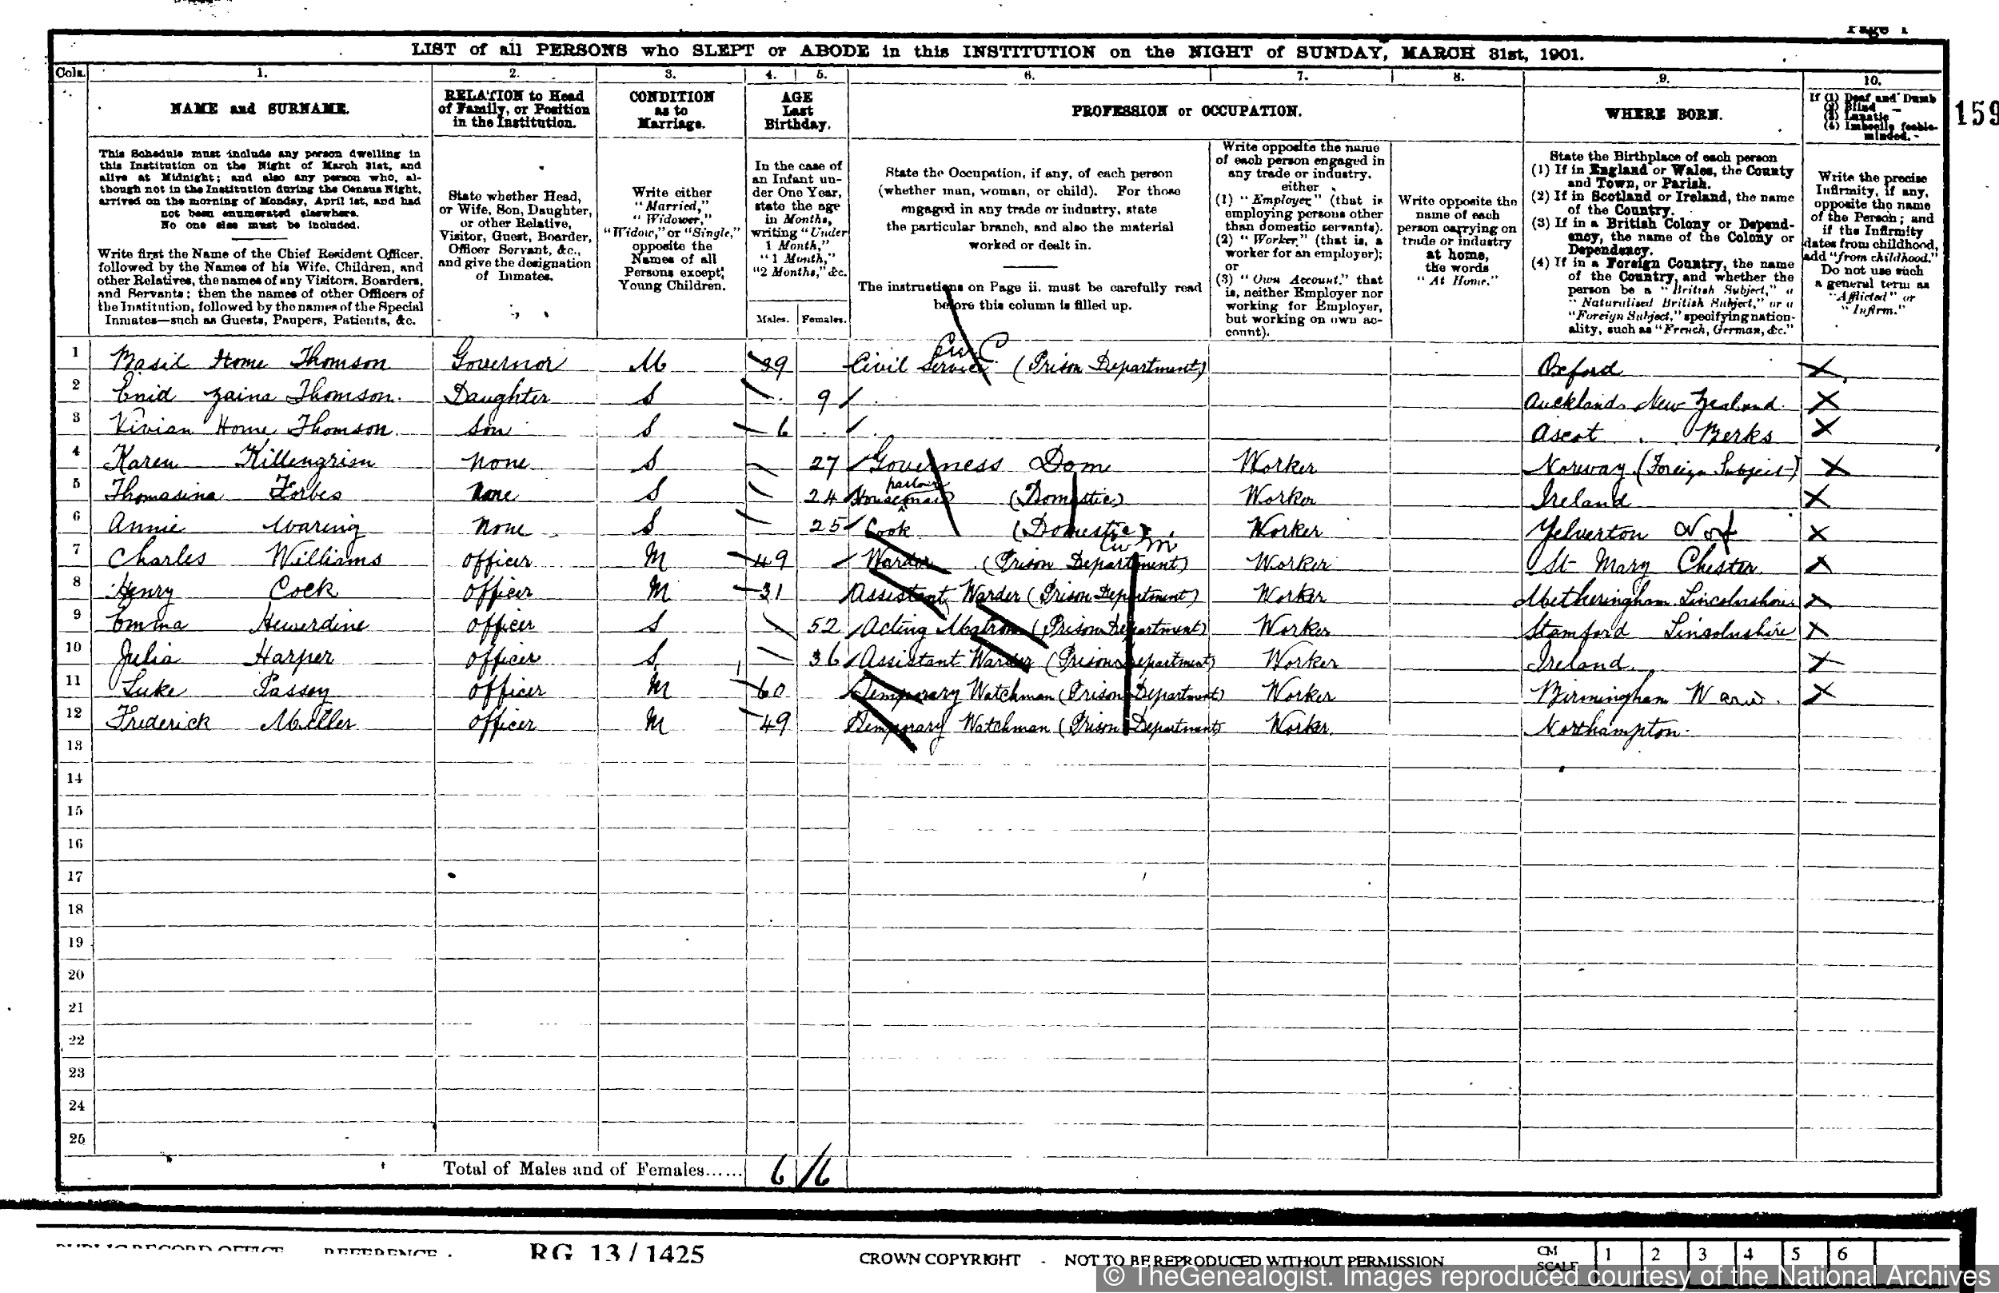 Page 1
LIST of all PERSONS who SLEPT or ABODE in this INSTITUTION on the NIGHT of SUNDAY, MARCH 31st, 1901.
Cols. 1. 2. 3. 4. 5. 6. 7. 8. 9. 10.
NAME and SURNAME.
This Schedule must include any person dwelling in
this Institution on the Night of March 31st, and
alive at Midnight; and also any person who, al-
though not in the Institution during the Census Night,
arrived on the morning of Monday, April 1st, and had
not been enumerated elsewhere.
No one else must be included.
Write first the Name of the Chief Resident Officer,
followed by the Names of his Wife, Children, and
other Relatives, the names of any Visitors, Boarders,
and Servants; then the names of other Officers of
the Institution, followed by the names of the Special
Inmates—such as Guests, Paupers, Patients, &c.
RELATION to Head
of Family, or Position
in the Institution.
State whether Head,
or Wife, Son, Daughter,
or other Relative,
Visitor, Guest, Boarder,
Officer Servant, &c.,
and give the designation
of Inmates.
CONDITION
as to
Marriage.
Write either
"Married,"
"Widower,"
"Widow," or "Single,"
opposite the
Names of all
Persons except
Young Children.
AGE
Last
Birthday.
In the case of
an Infant un-
der One Year,
state the age
in Months,
writing "Under
1 Month,"
"1 Month,"
"2 Months," &c.
Males. Females.
PROFESSION or OCCUPATION.
State the Occupation, if any, of each person
(whether man, woman, or child). For those
engaged in any trade or industry, state
the particular branch, and also the material
worked or dealt in.
The instructions on Page ii. must be carefully read
before this column is filled up.
Write opposite the name
of each person engaged in
any trade or industry,
either
(1) "Employer" (that is
employing persons other
than domestic servants),
(2) "Worker" (that is, a
worker for an employer);
or
(3) "Own Account," that
is, neither Employer nor
working for Employer,
but working on own ac-
count).
Write opposite the
name of each
person carrying on
trade or industry
at home,
the words
"At Home."
WHERE BORN.
State the Birthplace of each person
(1) If in England or Wales, the County
and Town, or Parish.
(2) If in Scotland or Ireland, the name
of the Country.
(3) If in a British Colony or Depend-
ency, the name of the Colony or
Dependency.
(4) If in a Foreign Country, the name
of the Country, and whether the
person be a "British Subject," a
"Naturalised British Subject," or a
"Foreign Subject," specifying nation-
ality, such as "French, German, &c."
If (1) Deaf and Dumb
(2) Blind
(3) Lunatic
(4) Imbecile feeble-
minded.
Write the precise
Infirmity, if any,
opposite the name
of the Person; and
if the Infirmity
dates from childhood,
add "from childhood."
Do not use such
a general term as
"Afflicted" or
"Infirm."
159
1 Basil Home Thomson Governor M 39 Civil Service (Prison Department) Oxford X
2 Enid Zaina Thomson. Daughter S 9 Auckland New Zealand X
3 Vivian Home Thomson Son S 6 Ascot Berks X
4 Karen Killengrien None S 27 Governess Dom Worker Norway (Foreign Subject) X
5 Thomasina Forbes None S 24 House parlour maid (Domestic) Worker Ireland X
6 Annie Waring None S 25 Cook (Domestic) Worker Yelverton Nof X
7 Charles Williams Officer M 49 Warder (Prison Department) Worker St Mary Chester X
8 Henry Cock Officer M 31 Assistant Warder (Prison Department) Worker Metheringham Lincolnshire X
9 Emma Hewerdine Officer S 52 Acting Matron (Prison Department) Worker Stamford Lincolnshire X
10 Julia Harper Officer S 36 Assistant Warder (Prison Department) Worker Ireland X
11 Luke Passey Officer M 60 Temporary Watchman (Prison Department) Worker Birmingham Warw. X
12 Frederick Miller Officer M 49 Temporary Watchman (Prison Department) Worker Northampton
13
14
15
16
17
18
19
20
21
22
23
24
25
Total of Males and of Females...... 6/6
PUBLIC RECORD OFFICE REFERENCE RG 13/1425 CROWN COPYRIGHT - NOT TO BE REPRODUCED WITHOUT PERMISSION CM SCALE 1 2 3 4 5 6
© TheGenealogist. Images reproduced courtesy of the National Archives